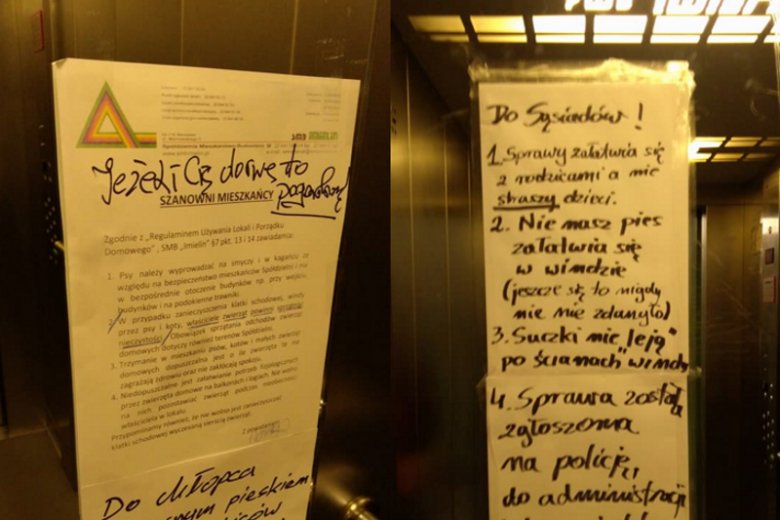 Jeżeli Cię dorwę to
SZANOWNI MIESZKAŃCY
Zgodnie z „Regulaminem Używania Lokali i Porządku
Domowego", SMB „Imielin" §7 pkt. 13 i 14 zawiadamia:
1. Psy należy wyprowadzać na smyczy i w kagańcu ze
względu na bezpieczeństwo mieszkańców Spółdzielni i nie
w bezpośrednie otoczenie budynków np. przy wejściu
budynków i na podokienne trawniki.
2. W przypadku zanieczyszczenia klatki schodowej, windy
przez psy i koty, właściciele zwierząt powinni sprzątnąć
nieczystości. Obowiązek sprzątania odchodów zwierząt
domowych dotyczy również terenów Spółdzielni.
3. Trzymanie w mieszkaniu psów, kotów i małych zwierząt
domowych dopuszczalna jest o ile zwierzęta te nie
zagrażają zdrowiu oraz nie zakłócają spokoju.
4. Niedopuszczalne jest załatwianie potrzeb fizjologicznych
przez zwierzęta domowe na balkonach i logiach. Nie wolno
na nich pozostawiać zwierząt podczas nieobecności
właściciela w lokalu.
Przypominamy również, że nie wolno jest zanieczyszczać
klatki schodowej wyczesaną sierścią zwierząt
Z poważaniem
Do chłopca
pieskiem
Do Sąsiadów!
1. Sprawy załatwia się
z rodzicami a nie
straszy dzieci.
2. Nie nasz pies
załatwia się
w windzie
(jeszcze się to nigdy
nie nie zdarzyło)
3. Suczki nie „leją"
po ścianach windy
4. Sprawa została
zgłoszona
na policję,
do administracji